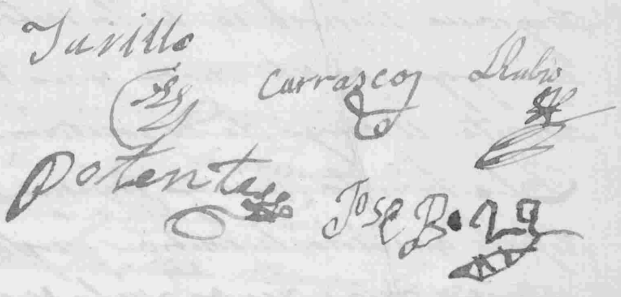 Turillo
Carrasco
Rubio
Potente
Jose B.